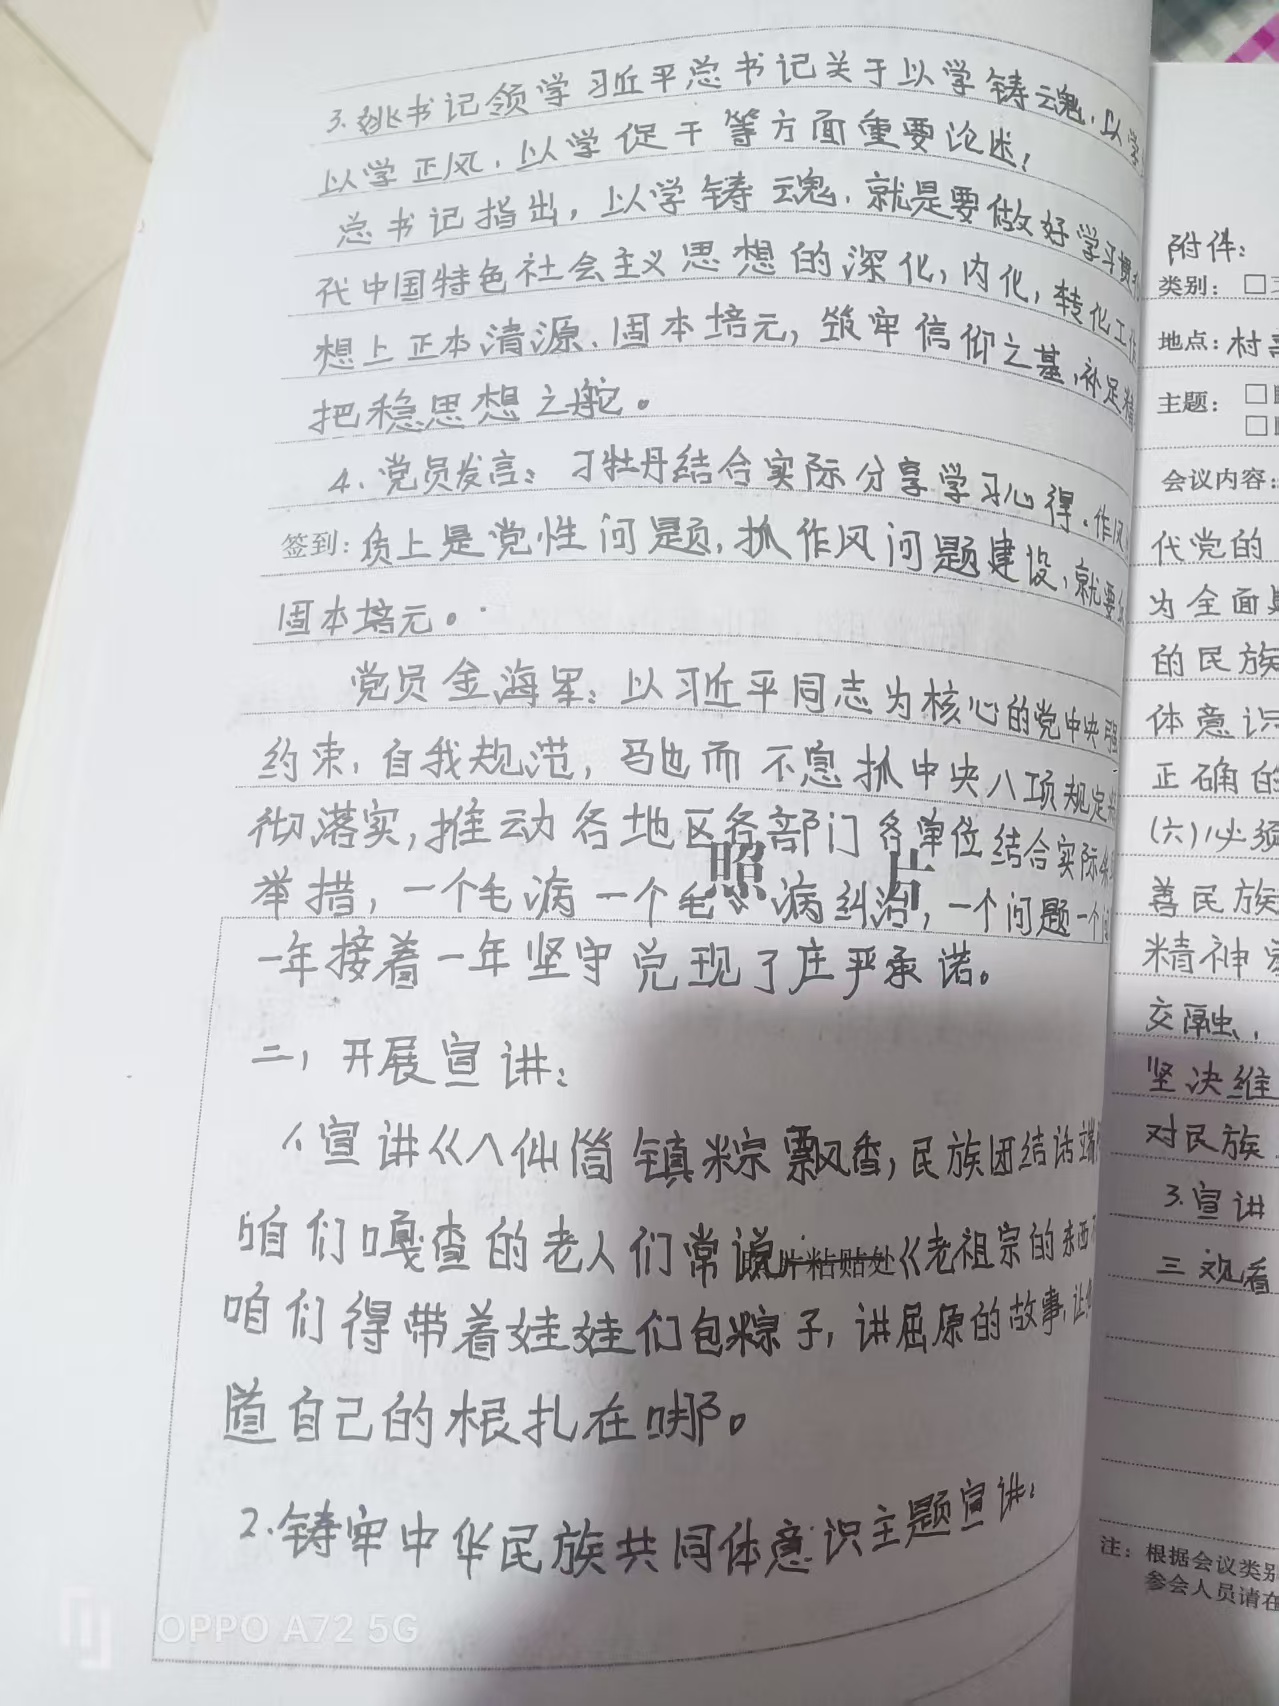 3.姚书记领学习近平总书记关于以学铸魂、以学
以学正风、以学促干等方面重要论述；
总书记指出，以学铸魂，就是要做好学习贯彻
代中国特色社会主义思想的深化，内化，转化工作
想上正本清源、固本培元，筑牢信仰之基，补足精
把稳思想之舵。
4.党员发言：刁牡丹结合实际分享学习心得，作风
签到：质上是党性问题，抓作风问题建设，就要
固本培元。
党员金海军：以习近平同志为核心的党中央
约束，自我规范，驰而不息抓中央八项规定
彻落实，推动各地区各部门各单位结合实际
举措，一个毛病一个毛病纠治，一个问题一个
照 片
一年接着一年坚守兑现了庄严承诺。
二，开展宣讲：
1.宣讲《八仙筒镇粽飘香，民族团结话端
咱们嘎查的老人们常说《老祖宗的东西
照片粘贴处
咱们得带着娃娃们包粽子，讲屈原的故事，让
道自己的根扎在哪。
2.铸牢中华民族共同体意识主题宣讲：
OPPO A72 5G
附件：
类别：□
地点：村
主题：□
□
会议内容：
代党的
为全面
的民族
体意识
正确的
(六)必须
善民族
精神
交融，
坚决维
对民族
3.宣讲
三 观看
注：根据会议类别
参会人员请在